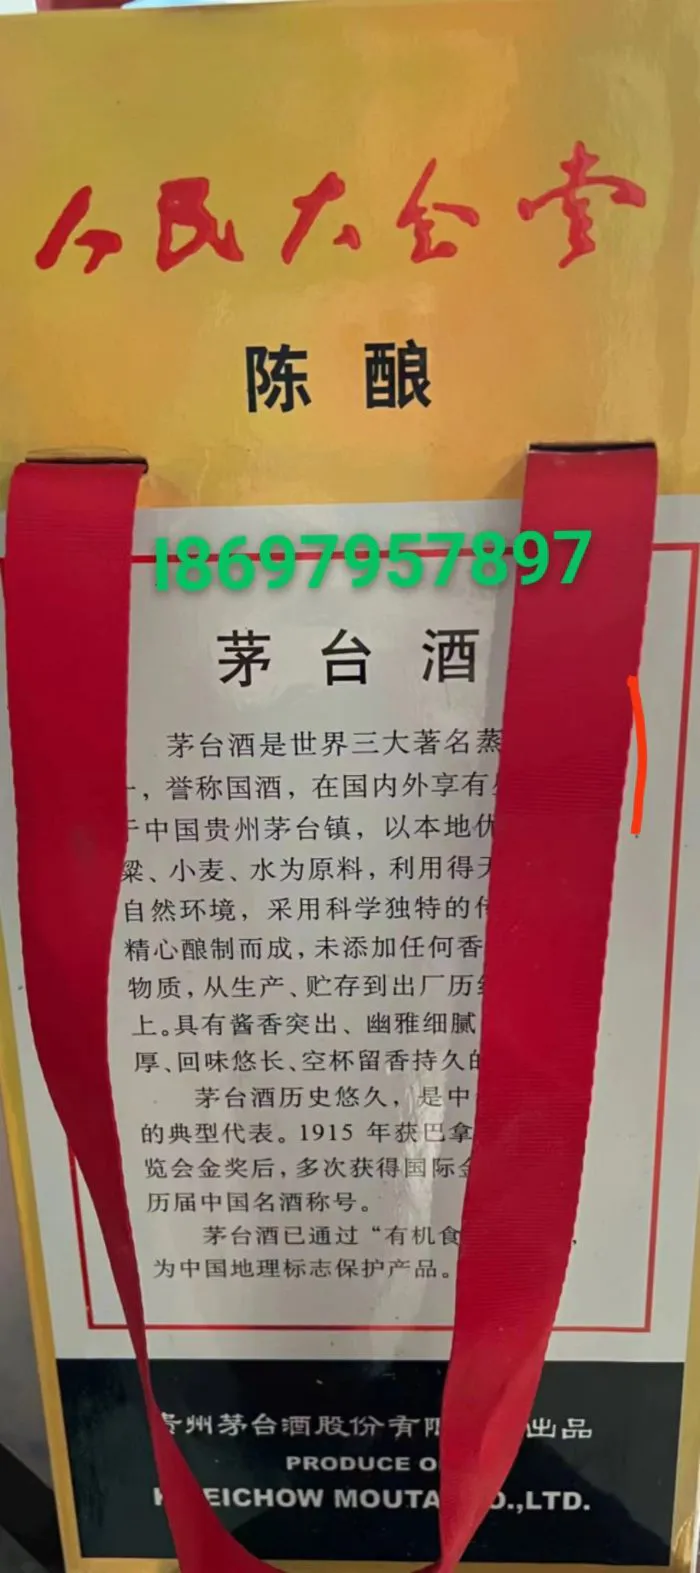 人民大会堂
陈酿
18697957897
茅台酒
茅台酒是世界三大著名蒸
，誉称国酒，在国内外享有
中国贵州茅台镇，以本地优
粱、小麦、水为原料，利用得天
自然环境，采用科学独特的传
精心酿制而成，未添加任何香
物质，从生产、贮存到出厂历经
上。具有酱香突出、幽雅细腻
厚、回味悠长、空杯留香持久的
茅台酒历史悠久，是中
的典型代表。1915 年获巴拿
览会金奖后，多次获得国际金
历届中国名酒称号。
茅台酒已通过“有机食
为中国地理标志保护产品。
贵州茅台酒股份有限 出品
PRODUCE O
K EICHOW MOUTA O.,LTD.